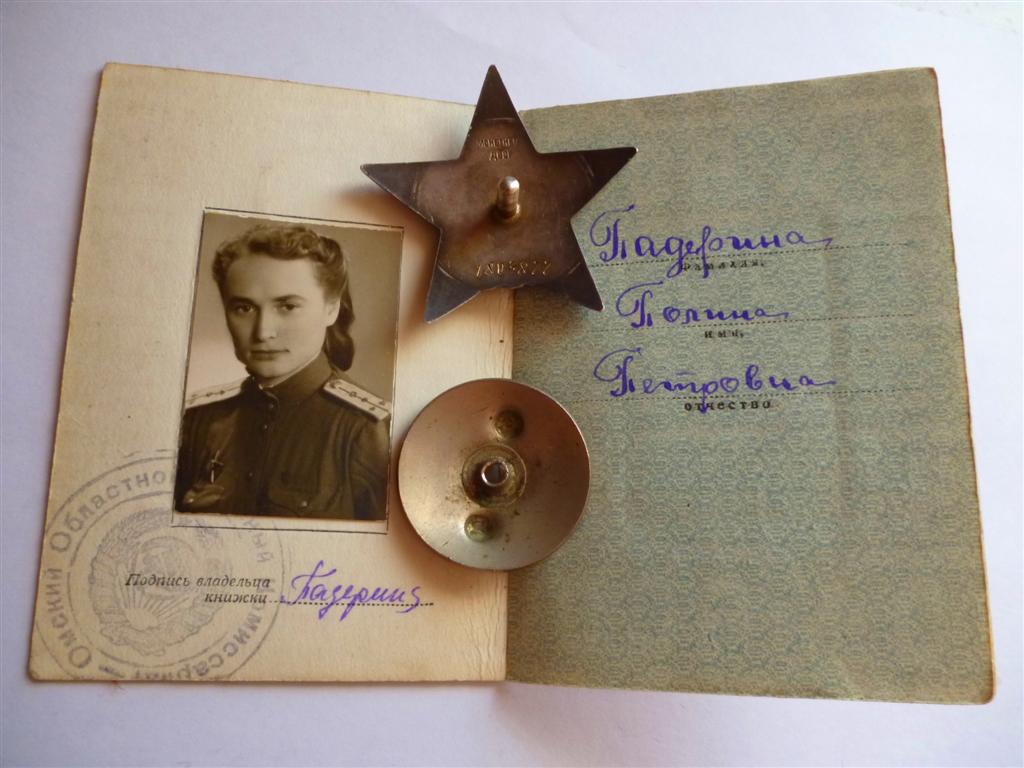 МОНЕТНЫЙ
ДВОР
1805877
Падерина
фамилия
Полина
имя
Петровна
отчество
Омский Областной
Комиссариат
Подпись владельца
книжки Падерина